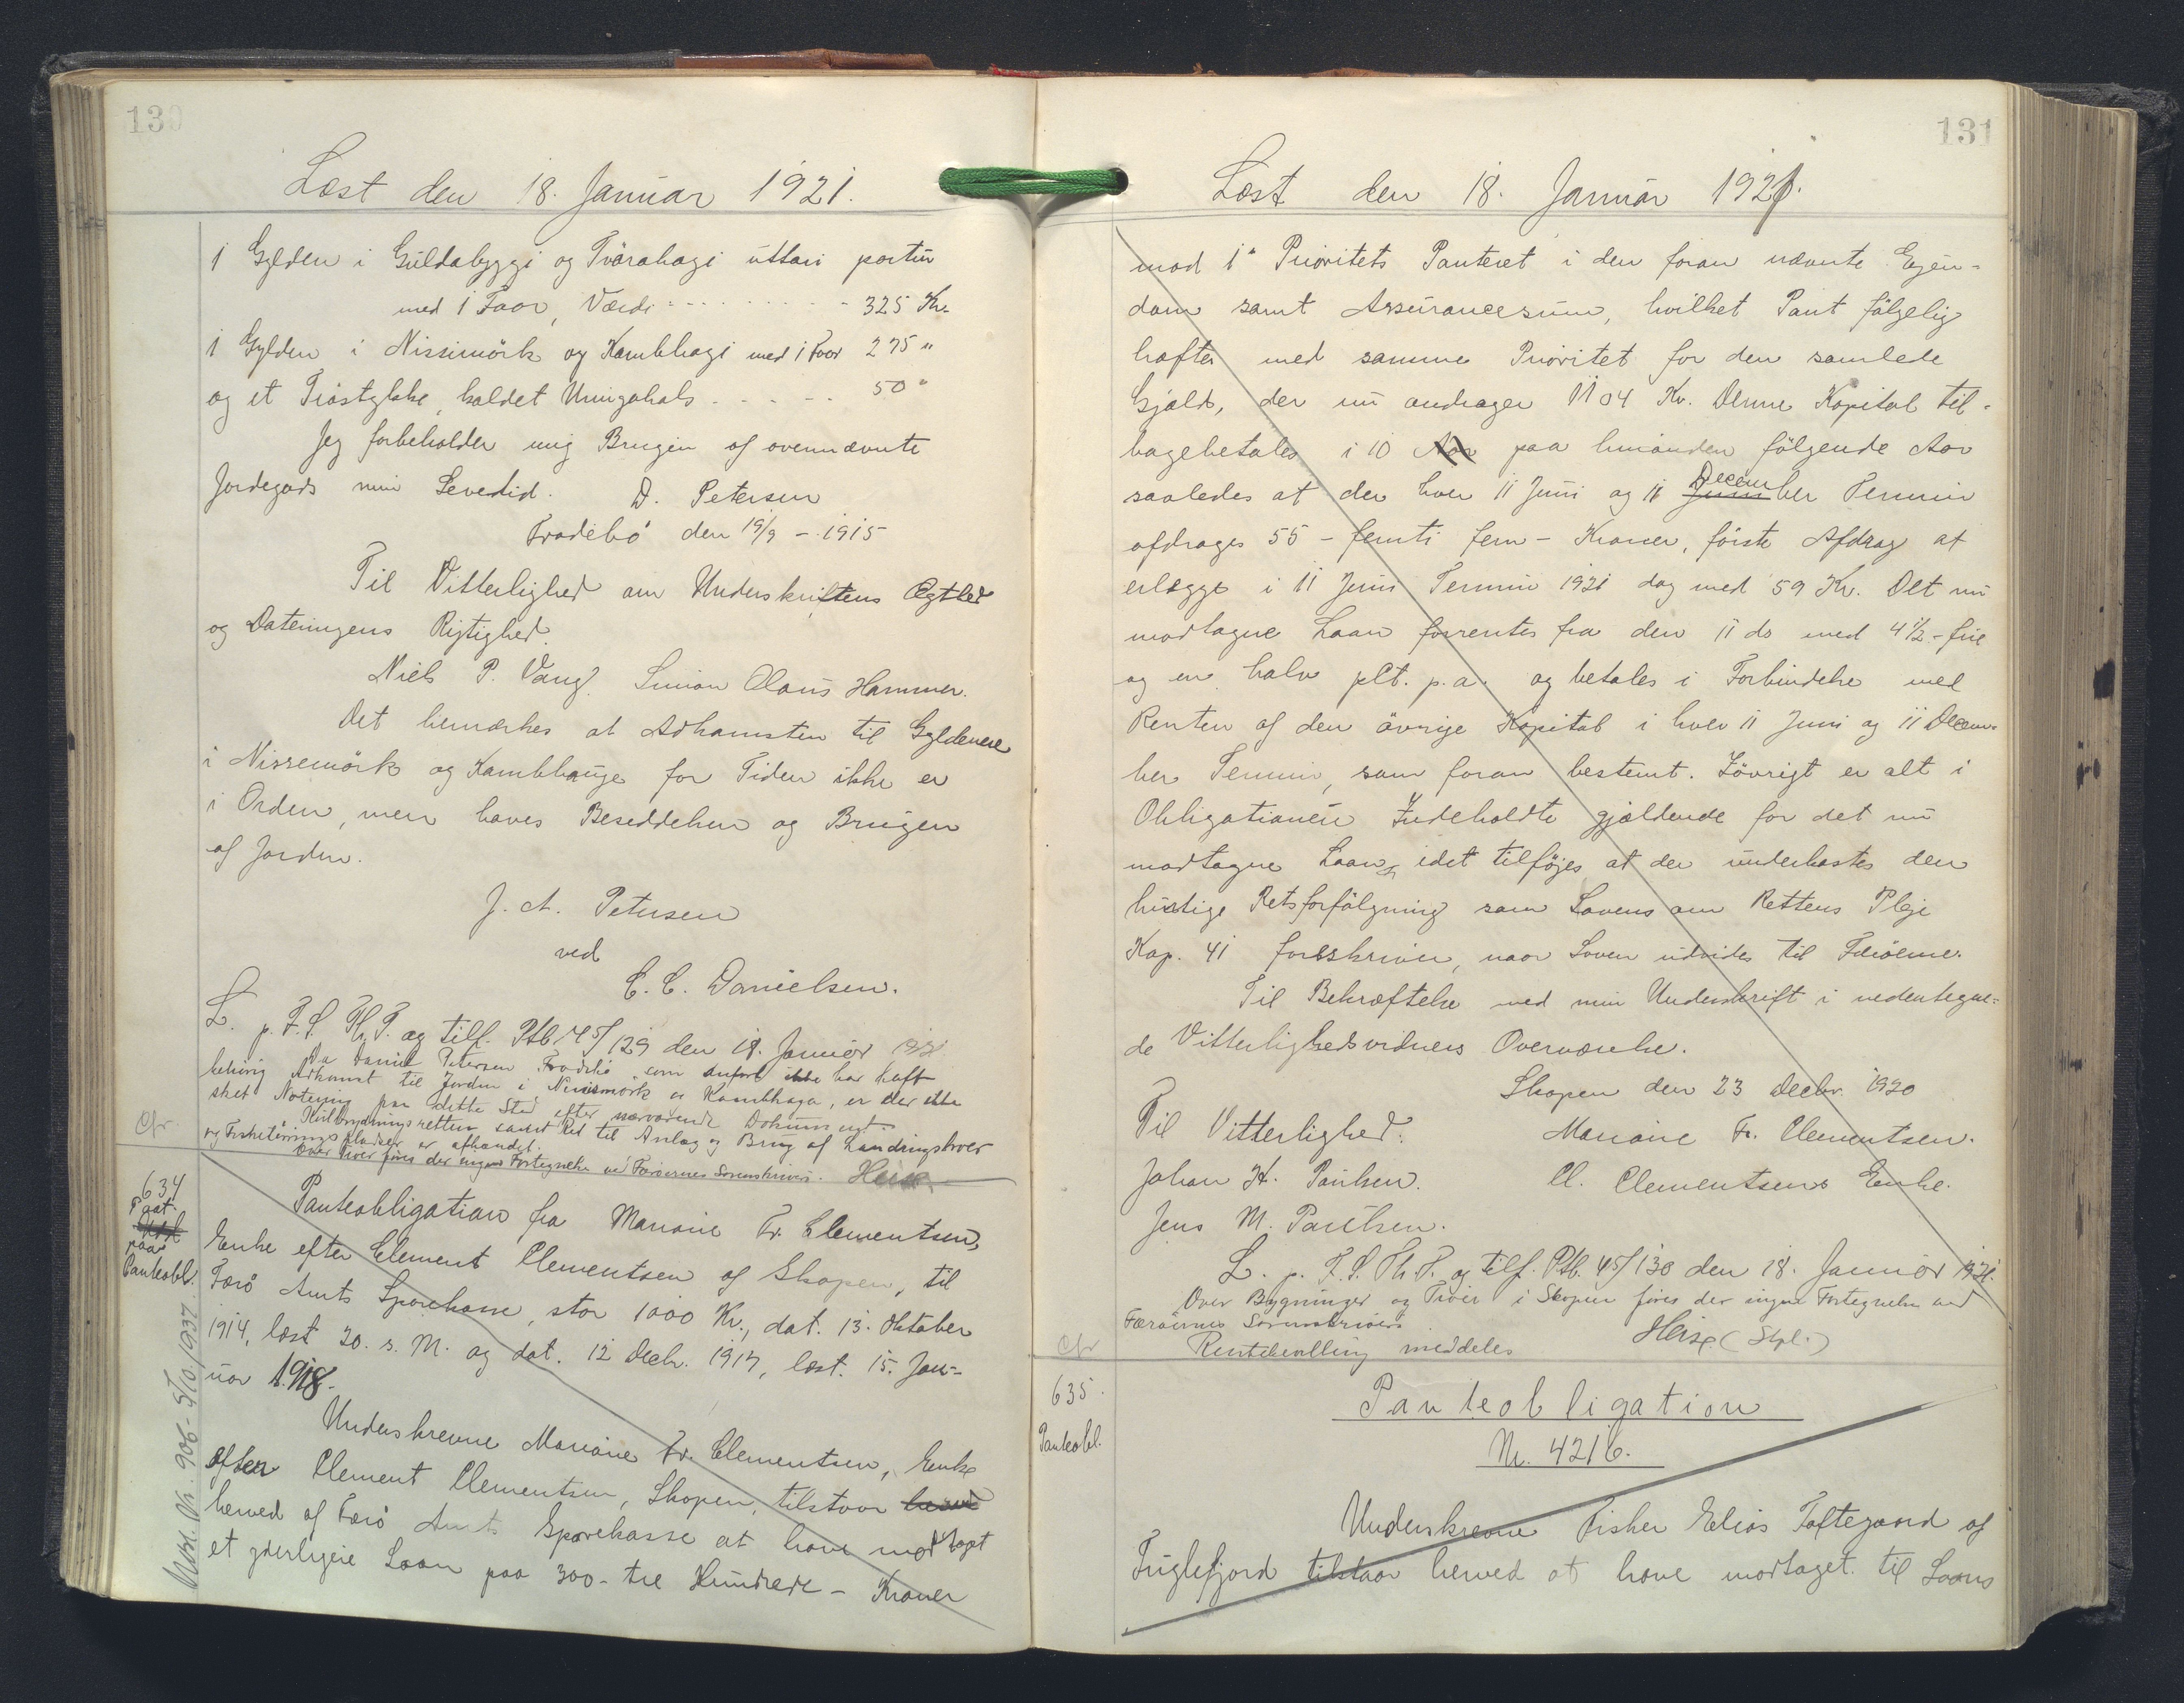 130
Læst den 18. Januar 1921.
1 Gylden i Guldabyggi og Tvårahagi uttari partur
med 1 Faar, Værdi - - - - - - - - - - 325 Kr.
1 Gylden i Nissimörk og Kambhagi med 1 Faar 275 "
og et Trøstykke, kaldet - - - - - 50 "
Jeg forbeholder mig Brugen af ovennævnte
Jordegods min Levetid. D. Petersen
Fradebø den 19/9 - 1915
Til Vitterlighed om Underskriftens Ægthed
og Dateringens Rigtighed.
Niels P. Vang. Simon Olaus Hammer.
Det bemærkes at Adkomsten til Gyldenene
i Nissemörk og Kambhauge for Tiden ikke er
i Orden, men haves Besiddelsen og Brugen
af Jorden.
J. A. Petersen
ved
C. C. Danielsen.
L. p. F. S. Th. P. og tilf. Ptb. 45/129 den 18. Januar 1921
Da Daniel Petersen Fradebø som anført ikke har haft
behørig Adkomst til Jorden i Nissimörk og Kambhaga, er der ikke
sket Notering paa dette Sted efter nærværende Dokument.
Hvilbrydningsretten samt Ret til Anlæg og Brug af Landingssteder
og Fisketørringspladser er afhændet.
Over Tröer föres der ingen Fortegnelse ved Færøernes Sorenskriveri. Heise
Cfr.
634
Paat.
paa
Panteobl.
Panteobligation fra Mariane Fr. Clementsen,
Enke efter Clement Clementsen af Skopen, til
Færø Amts Sparekasse, stor 1000 Kr., dat. 13. Oktober
1914, læst 20. s. M. og dat. 12 Decbr. 1917, læst. 15. Jan-
uar 1918.
Underskrevne Mariane Fr. Clementsen, Enke
efter Clement Clementsen, Skopen, tilstaar
herved af Færø Amts Sparekasse at have modtaget
et yderligere Laan paa 300 - tre Hundrede - Kroner
Nr. 906 - 5/10 1937
131
Læst den 18. Januar 1921.
mod 1" Prioritets Panteret i den foran nævnte Ejen-
dom samt Assurancesum, hvilket Pant følgelig
hæfter med samme Prioritet for den samlede
Gjæld, der nu andrager 1104 Kr. Denne Kapital til-
bagebetales i 10 Aar paa hinanden følgende Aar
saaledes at der hver 11 Juni og 11 December Termin
afdrages 55 - femti fem - Kroner, første Afdrag at
erlægge i 11 Juni Termin 1921 dog med 59 Kr. Det nu
modtagne Laan forrentes fra den 11 ds med 4 1/2 - fire
og en halv pCt. p.a. og betales i Forbindelse med
Renten af den øvrige Kapital i hver 11 Juni og 11 Decem-
ber Termin, som foran bestemt. Iövrigt er alt i
Obligationen Indeholdte gjældende for det nu
modtagne Laan, idet tilføjes at der underkastes den
hurtige Retsforfølgning som Lovens om Rettens Pleje
Kap. 41 foreskriver, naar Loven udvides til Færøerne.
Til Bekræftelse med min Underskrift i undertegne-
de Vitterlighedsvidners Overværelse.
Skopen den 23 Decbr. 1920
Til Vitterlighed: Mariane Fr. Clementsen.
Johan H. Poulsen. Cl. Clementsens Enke.
Jens M. Poulsen.
L. p. F. S. Th. P. og tilf. Ptb. 45/130 den 18. Januar 1921.
Over Bygninger og Tröer i Skopen føres der ingen Fortegnelse ved
Færøernes Sorenskriveri.
Heise (Stpl.)
Cfr
Rentebevilling meddeles
635.
Panteobl.
Panteobligation
Nr. 4216.
Underskrevne Fisker Elias Toftegaard af
Fuglefjord tilstaar herved at have modtaget til Laans